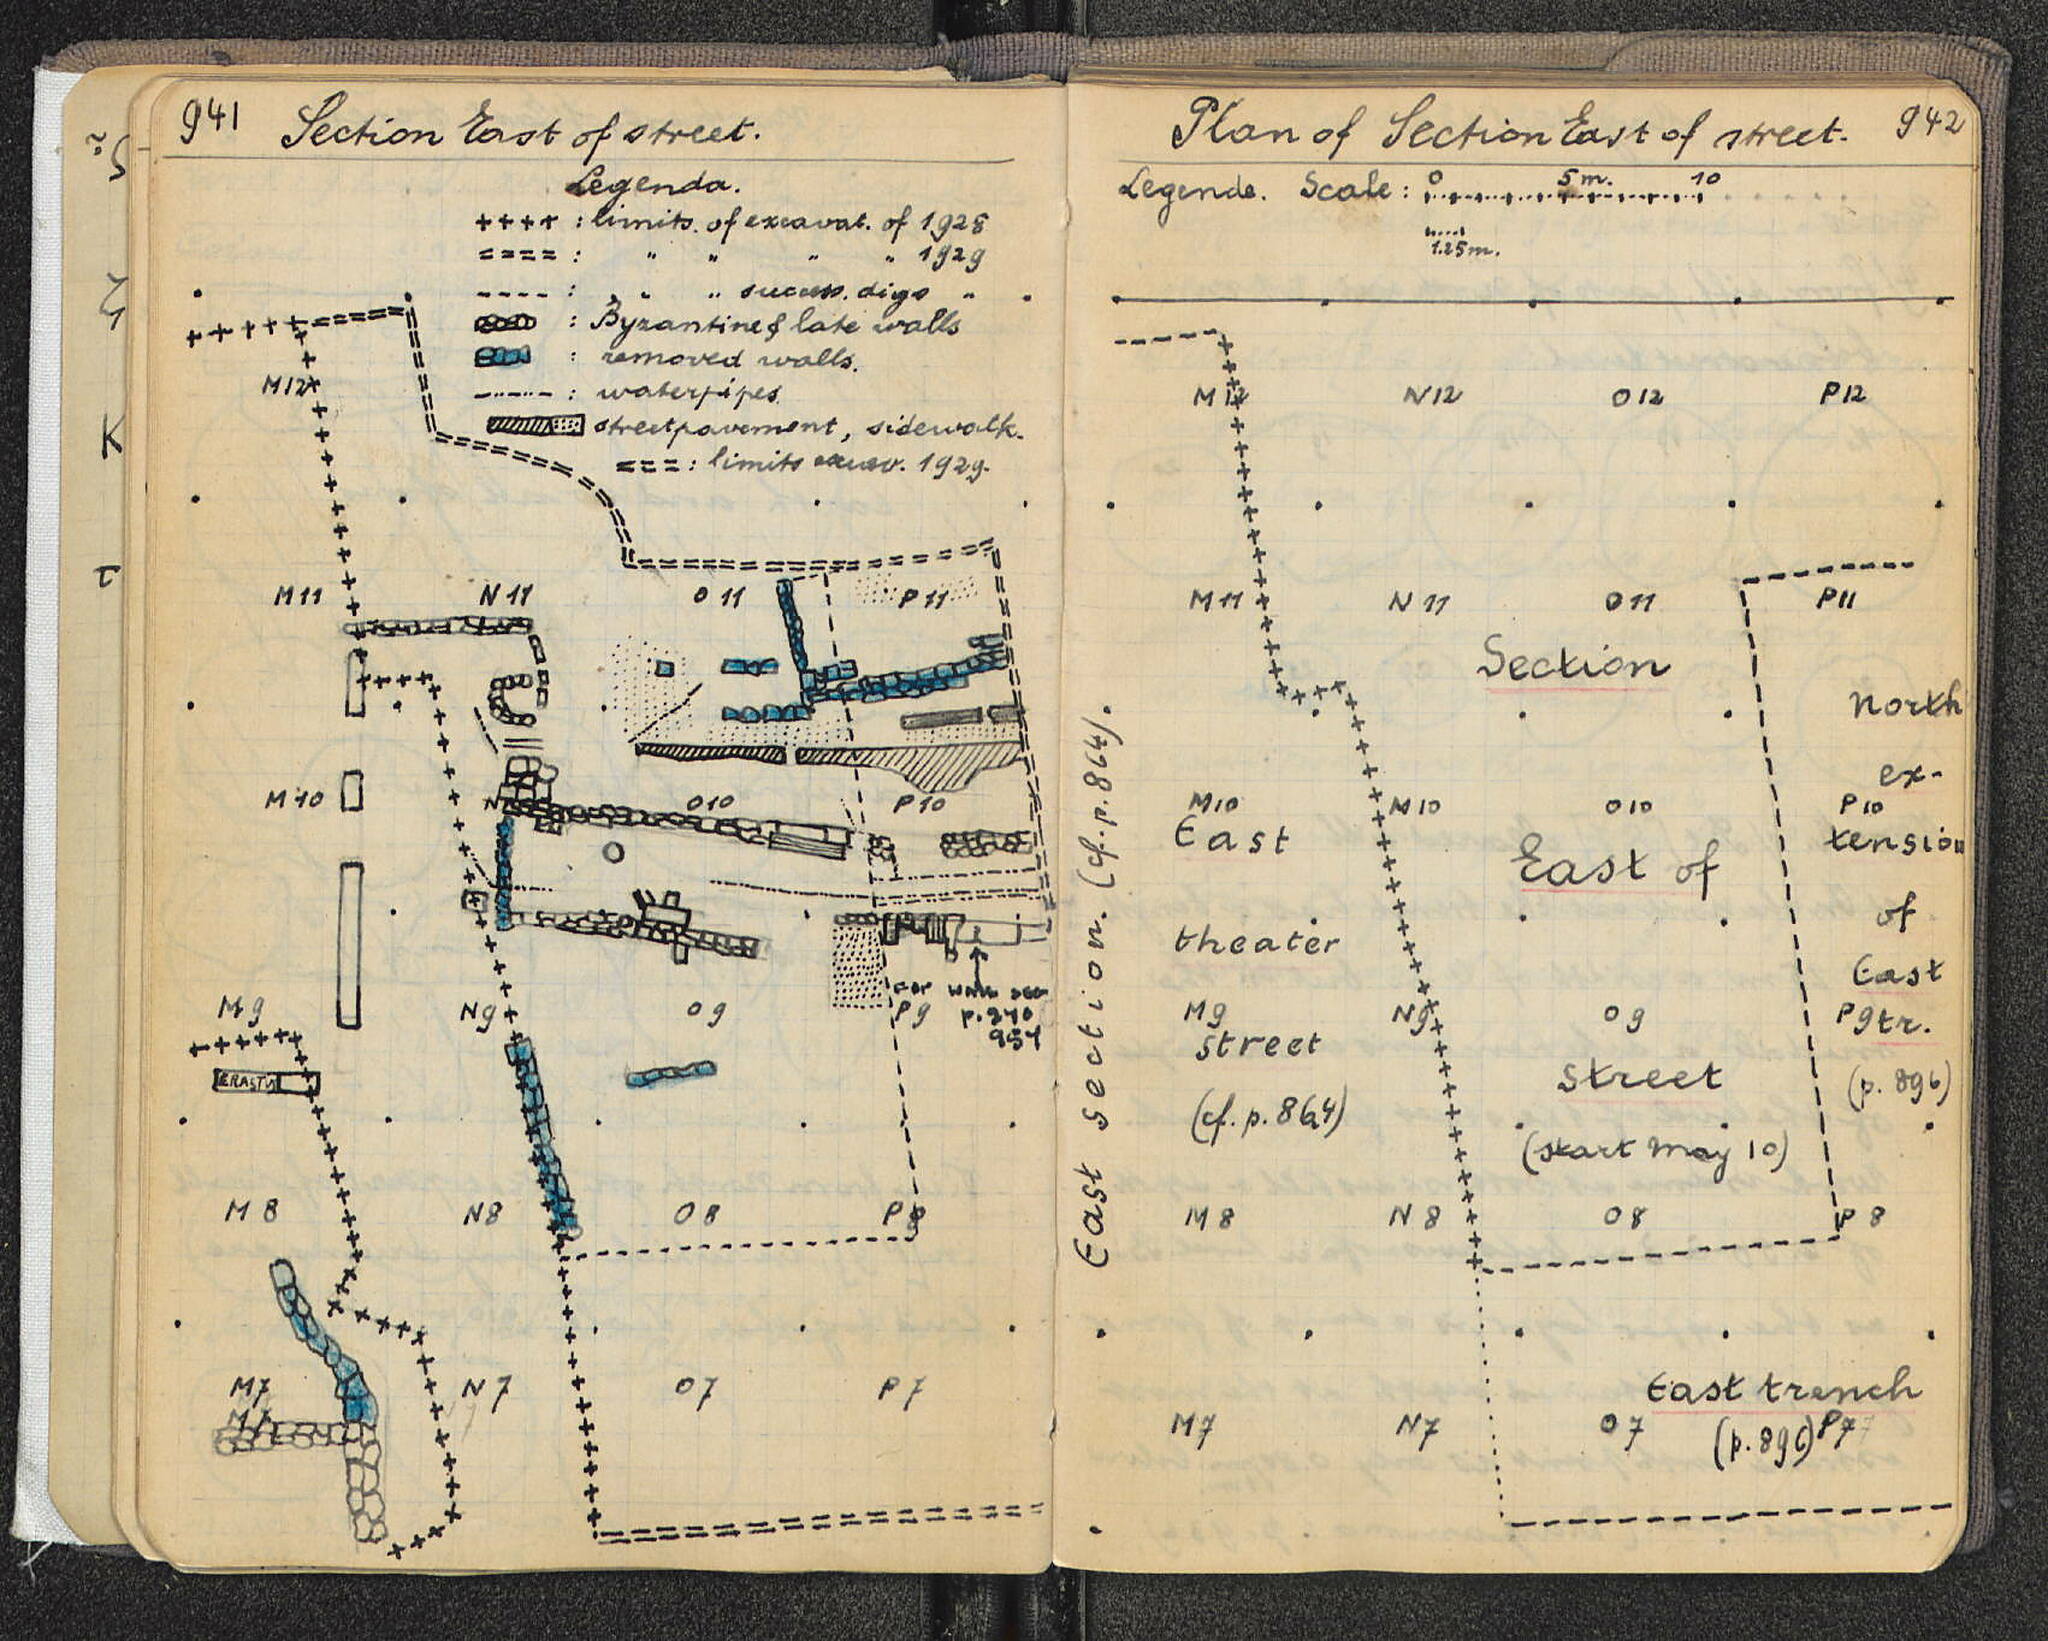 941 Section East of street.
Legenda.
++++ : limits. of excavat. of 1928
==== : " " " " 1929
---- : " " " success. digs "
: Byzantine & late walls
: removed walls.
-·-··- : waterpipes
streetpavement, sidewalk.
=== : limits excav. 1929.
M12
M11 N11 O11 P11
M10 O10 P10
M9 N9 O9 P9
For wall see
p. 940
954
ERASTVS
M8 N8 O8 P8
M7 N7 O7 P7
M7
Plan of Section East of street. 942
Legende. Scale: 0 5m. 10
1.25m.
M12 N12 O12 P12
M11 N11 O11 P11
Section
North
ex-
M10 M10 O10 P10
East East of tension
of
theater East
M9 N9 O9 P9 tr.
street street (p. 896)
(cf. p. 864) (start May 10)
M8 N8 O8 P8
East trench
M7 N7 O7 (p. 896) P7
East section. (cf. p. 864).
K
τ